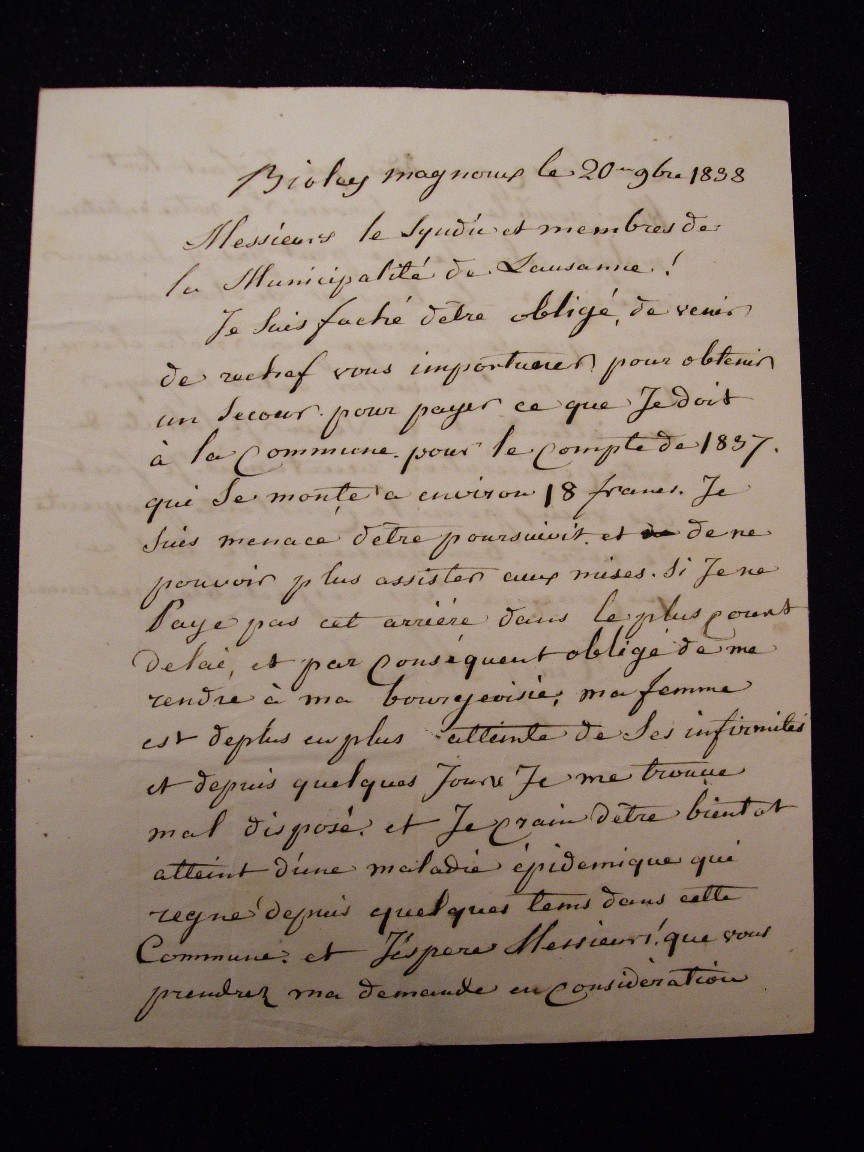 Bioley magnoux le 20 9bre 1838
Messieurs le Syudic et membres de
la Municipalité de Lausanne !
Je Suis faché dêtre obligé, de venir
de rechef vous importuner pour obtenir
un Secour pour payer ce que Je doit
à la Commune pour le Compte de 1837.
qui Se monte a environ 18 francs. Je
Suis menacé dêtre poursuivit et de ne
pouvoir plus assister aux mises. Si Je ne
Paye pas cet arriére dans le plus court
delai, et par Conséquent obligé de me
rendre à ma bourgeoisie, ma femme
est deplus en plus atteinte de Ses infirmités
et depuis quelques Jours Je me trouve
mal disposé. et Je Crain dêtre bientot
atteint d'une maladie épidemique qui
regne depuis quelques tems dans cette
Commune. et J'éspere Messieurs ! que vous
prendrez ma demande en Considération